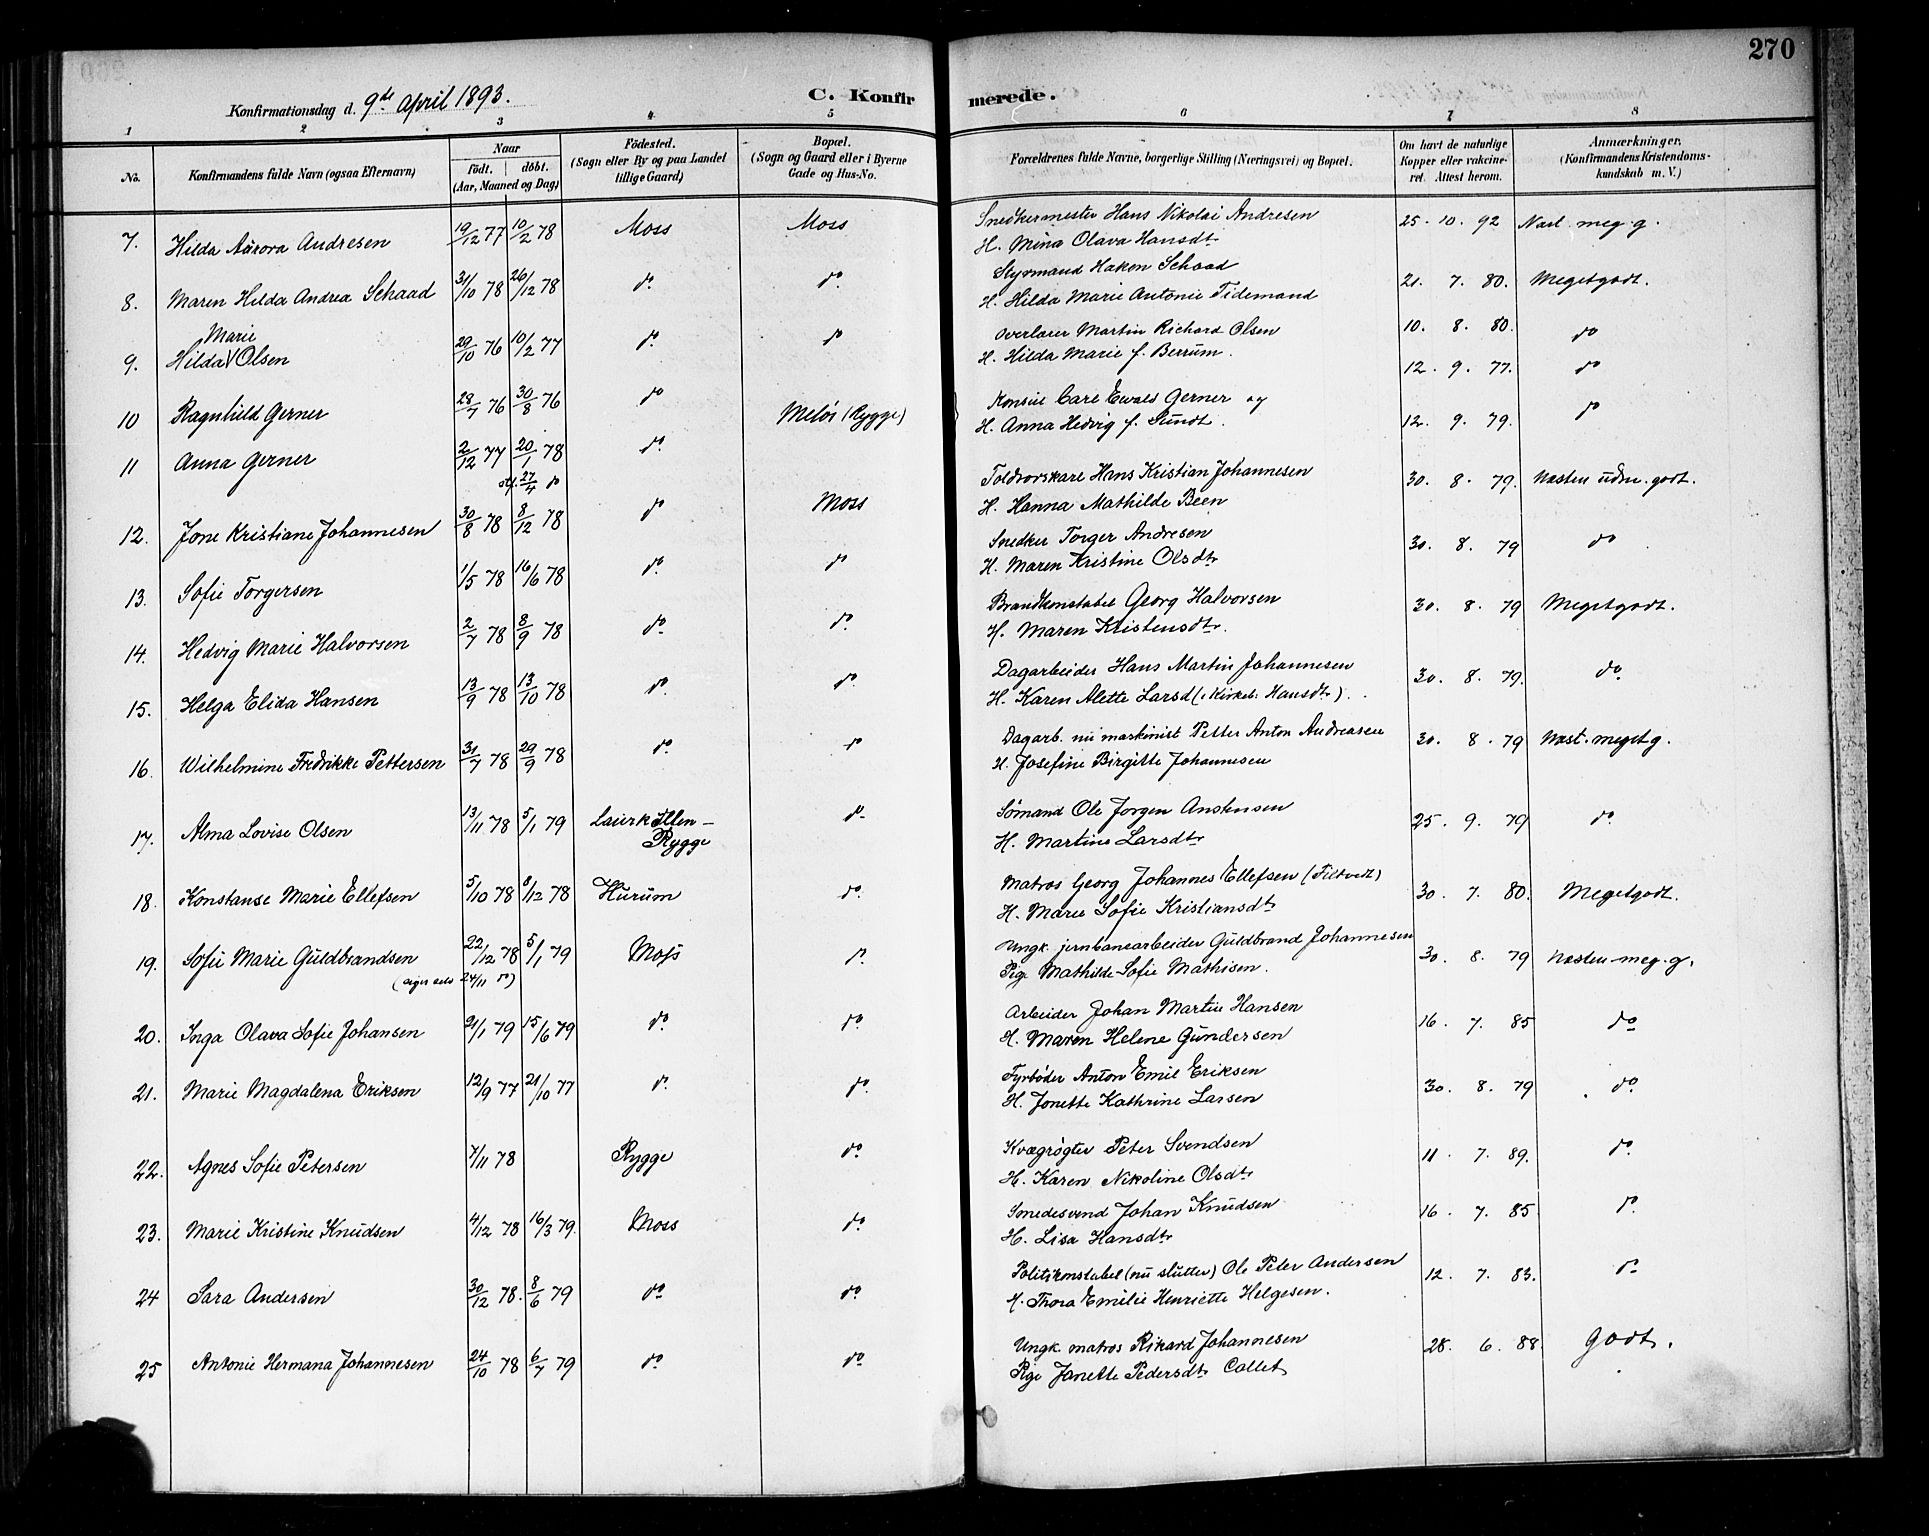 270
Konfirmationsdag d. 9de April 1893.
C. Konfirmerede.
1 2 3 4 5 6 7 8
No. Konfirmandens fulde Navn (ogsaa Efternavn) Naar født. døbt. (Aar, Maaned og Dag) Fødested. (Sogn eller By og paa Landet tillige Gaard) Bopæl. (Sogn og Gaard eller i Byerne Gade og Hus-No. Forældrenes fulde Navne, borgerlige Stilling (Næringsvei) og Bopæl. Om havt de naturlige Kopper eller vakcineret. Attest herom. Anmærkninger. (Konfirmandens Kristendomskundskab m. V.)
7. Hilda Aurora Andresen 19/12 77 10/2 78 Moss Moss Snedkermester Hans Nikolai Andresen 25. 10. 92 Næst. meg. g.
H. Mina Olava Hansdt.
8. Maren Hilda Andrea Schaad 31/10 78 26/12 78 do. do. Styrmand Haken Schaad 21. 7. 80. Megetgodt.
H. Hilda Marie Antonie Tidemand
9. Hilda Marie Olsen 29/10 76 10/2 77 do. do Overlærer Martin Richard Olsen 10. 8. 80. do
H. Hilda Marie f. Berrum.
10 Ragnhild Gerner 28/7 76 30/8 76 do Meløs (Rygge) Konsul Carl Ewald Gerner og 12. 9. 77. do
H. Anna Hedvig f. Sundt.
11 Anna Gerner 2/12 77 20/1 78 do. 12. 9. 79. do
stf. 27/4 do
12. Jone Kristiane Johannesen 30/8 78 8/12 78 do Moss Toldvorskare Hans Kristian Johannesen 30. 8. 79. Næsten udm. godt.
H. Hanna Mathilde Been
13. Sofie Torgersen 1/5 78 16/6 78 do. do Snedker Torger Andresen 30. 8. 79 do
H. Maren Kristine Olsdtr
14. Hedvig Marie Halvorsen 2/7 78 8/9 78 do. do. Brandkonstabel Georg Halvorsen 30. 8. 79 Megetgodt.
H. Maren Kristensdtr.
15. Helga Elida Hansen 13/9 78 13/10 78 do. do. Dagarbeider Hans Martin Johannesen 30. 8. 79. do.
H. Karen Alette Larsd (i Kirkeb. Hansdtr).
16. Wilhelmine Fredrikke Pettersen 31/7 78 29/9 78 do. do Dagarb. nu maskinist Petter Anton Andreasen 30. 8. 79 Næst. megetg.
H. Josefine Birgitte Johannesen
17. Alma Lovise Olsen 13/11 78 5/1 79 Laurkullen - Rygge do Sømand Ole Jorgen Anstensen 25. 9. 79 do
H. Martine Larsdtr
18. Konstanse Marie Ellefsen 5/10 78 8/12 78 Hurum do. Matros Georg Johannes Ellefsen (Filtvedt) 30. 7. 80. Megetgodt.
H. Marie Sofie Kristiansdtr
19. Sofie Marie Guldbrandsen 22/12 78 5/1 79 Moss do. Ungk. jernbanearbeider Guldbrand Johannesen 30. 8. 79 Næsten meg. g.
(siger selv 24/11 do) Pige Mathilde Sofie Mathisen.
20. Inga Olava Sofie Johansen 21/1 79 15/6 79 do. do. Arbeider Johan Martin Hansen 16. 7. 85 do
H. Maren Helene Gundersen
21. Marie Magdalena Eriksen 12/9 77 21/10 77 do. do. Fyrbøder Anton Emil Eriksen 30. 8. 79 do.
H. Jonette Kathrine Larsen
22. Agnes Sofie Petersen 7/11 78 Rygge do. Kvægrøgter Peter Svendsen 11. 7. 89. do.
H. Karen Nikoline Olsdtr
23. Marie Kristine Knudsen 4/12 78 16/3 79. Moss do. Smedesvend Johan Knudsen 16. 7. 85 do.
H. Lisa Hansdtr
24 Sara Andersen 30/12 78. 8/6 79 do do. Politikonstabel (nu slutter) Ole Peter Andersen 12. 7. 83. do
H. Thora Emilie Henriette Helgesen.
25 Antonie Hermana Johannesen 24/10 78 6/7 79 do do. Ungk. matros Rikard Johannesen 28. 6. 88. Godt.
Pige Janette Pedersdtr Callet